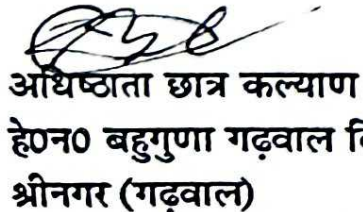 अधिष्ठाता छात्र कल्याण
हे0न0 बहुगुणा गढ़वाल
श्रीनगर (गढ़वाल)